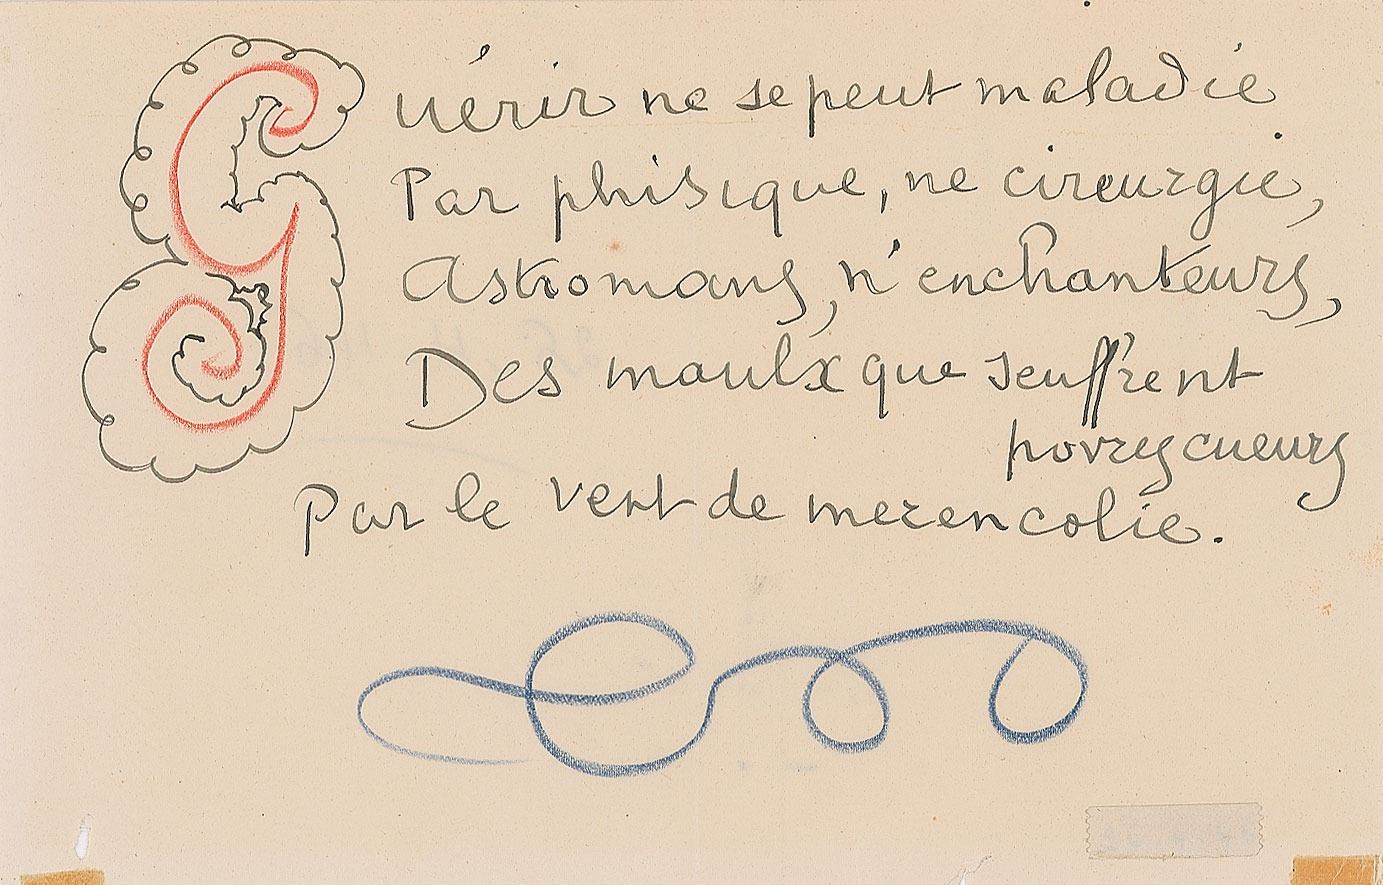 Guérir ne se peut maladie
Par phisique, ne cireurgie,
Astromans, n'enchanteurs,
Des maulx que seuffrent
povres cueurs
Par le vent de merencolie.